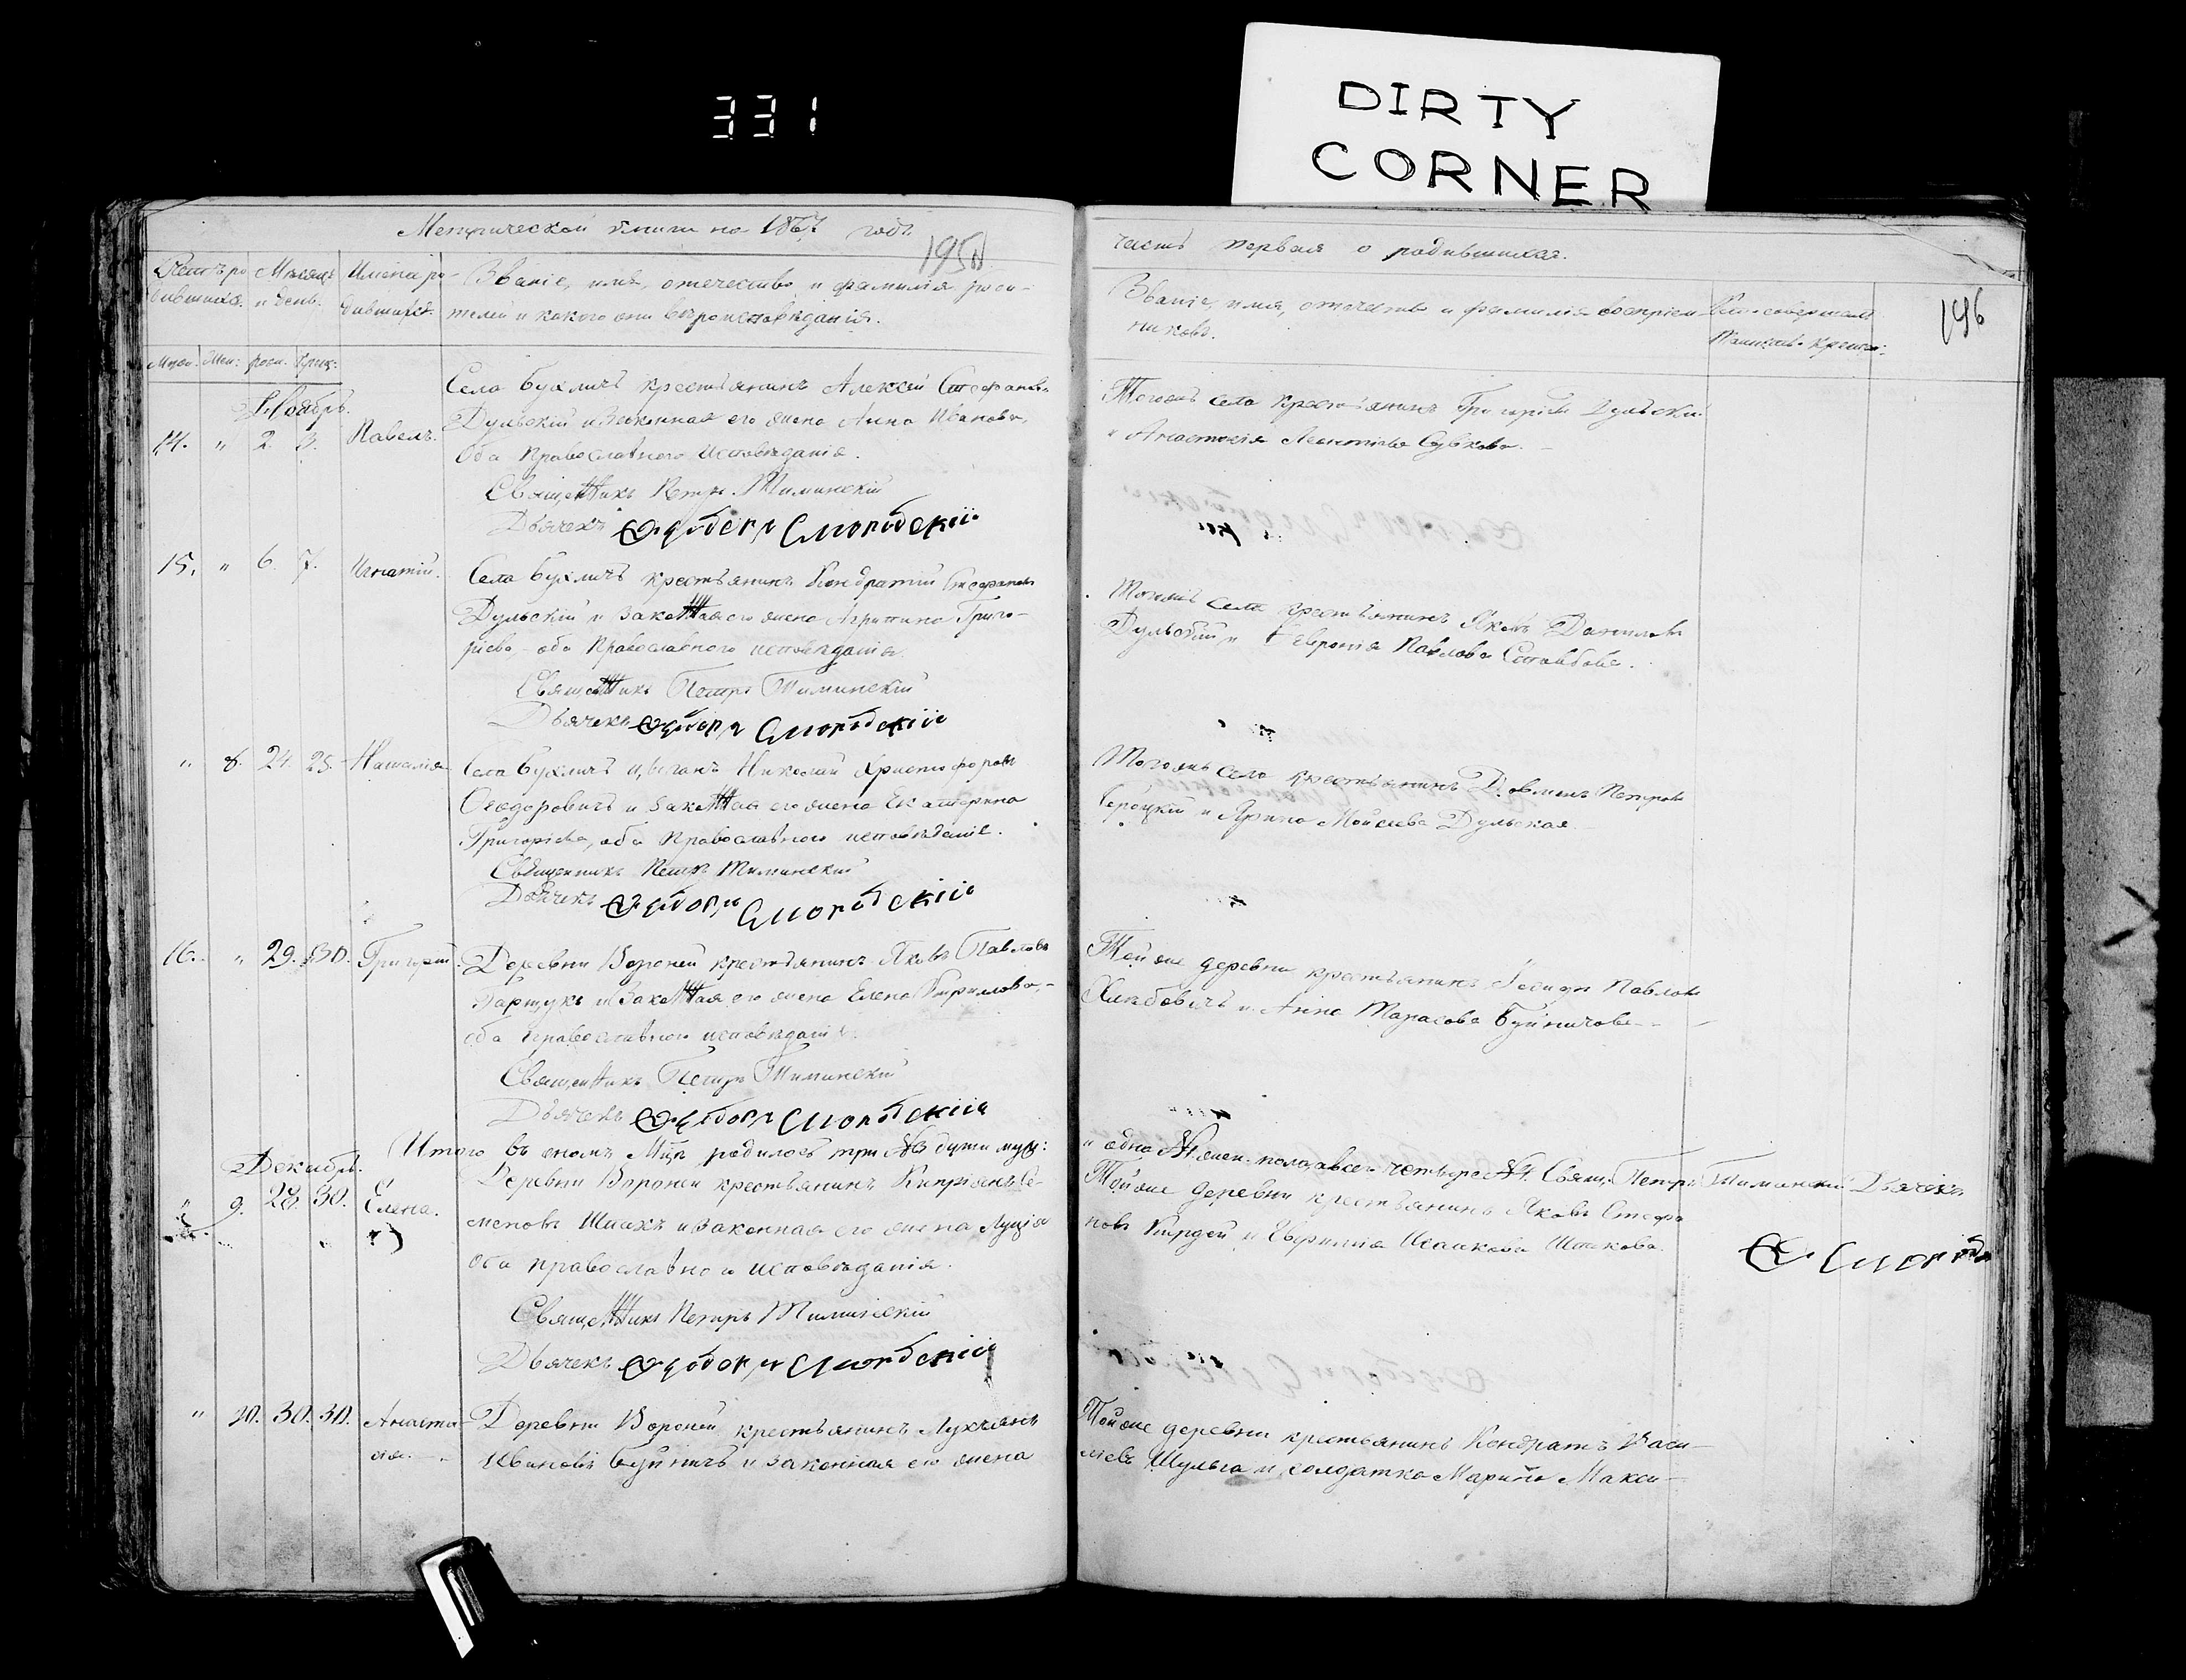 331
DIRTY
CORNER
Метрической книги на 1867 годъ.
195
Счетъ ро- Мѣсяцъ Имена ро- Званіе, имя, отечество и фамилія роди-
дившихся. и день. дившихся. телей и какого они вѣроисповѣданія.
Муж. Жен: рож. крещ:
Ноябрь.
14. " 2. 3. Павелъ.
Села Бухличъ крестьянинъ Алексѣй Стефановъ
Дульскій и Законная его жена Анна Иванова,
Оба Православнаго Исповѣданія.
Священникъ Петръ Тиминскій
Дьячекъ Ѳеодоръ
15. " 6. 7. Игнатій.
Села Бухличъ крестьянинъ Кондратій Стефановъ
Дульскій и Законная его жена Агрипина Григо-
рьева, оба Православнаго исповѣданія.
Священникъ Петръ Тиминскій
Дьячекъ Ѳеодоръ
" 8. 24. 25. Наталія
Села Бухличъ цыганъ Николай Христофоровъ
Ѳеодоровичъ и Законная его жена Екатерина
Григорьева, оба Православнаго исповѣданія.
Священникъ Петръ Тиминскій
Дьячекъ Ѳеодоръ
16. " 29. 30. Григорій.
Деревни Вороней крестьянинъ Яковъ Павловъ
и Законная его жена Елена Кирилова,
оба Православнаго исповѣданія.
Священникъ Петръ Тиминскій
Дьячекъ Ѳеодоръ
Итого въ ономъ Мцѣ родилось три души муж:
Декабрь.
" 9. 28. 30. Елена.
Деревни Вороней крестьянинъ Кипріянъ Се-
меновъ Шишъ и Законная его жена Луція
Оба православнаго исповѣданія.
Священникъ Петръ Тиминскій
Дьячекъ Ѳеодоръ
" 10. 30. 30. Анаста-
сія.
Деревни Вороней крестьянинъ Лукьянъ
Ивановъ Буйничъ и законная его жена
часть первая о родившихся.
196
Званіе, имя, отечество и фамилія воспріем- Кто совершалъ
никовъ. Таинство крещен:
Тогожъ села крестьянинъ Григорій Дульскій
и Анастасія Леонтьева
Тогожъ села крестьянинъ Яковъ Даниловъ
Дульскій и Евфросія Павлова
Тогожъ села крестьянинъ Петровъ
и Ярина Моисеева Дульская
Тойже деревни крестьянинъ Павловъ
и Анна Тарасова Буйничова
и одна жен. пола, а всего четыре Свящ. Петръ Тиминскій Дьячекъ
Тойже деревни крестьянинъ Яковъ Стефа-
новъ Кирдей и Евфимія Исаикова Шишкова.
Тойже деревни крестьянинъ Кондратъ Васи-
льевъ Шульга и солдатка Марина Макси-